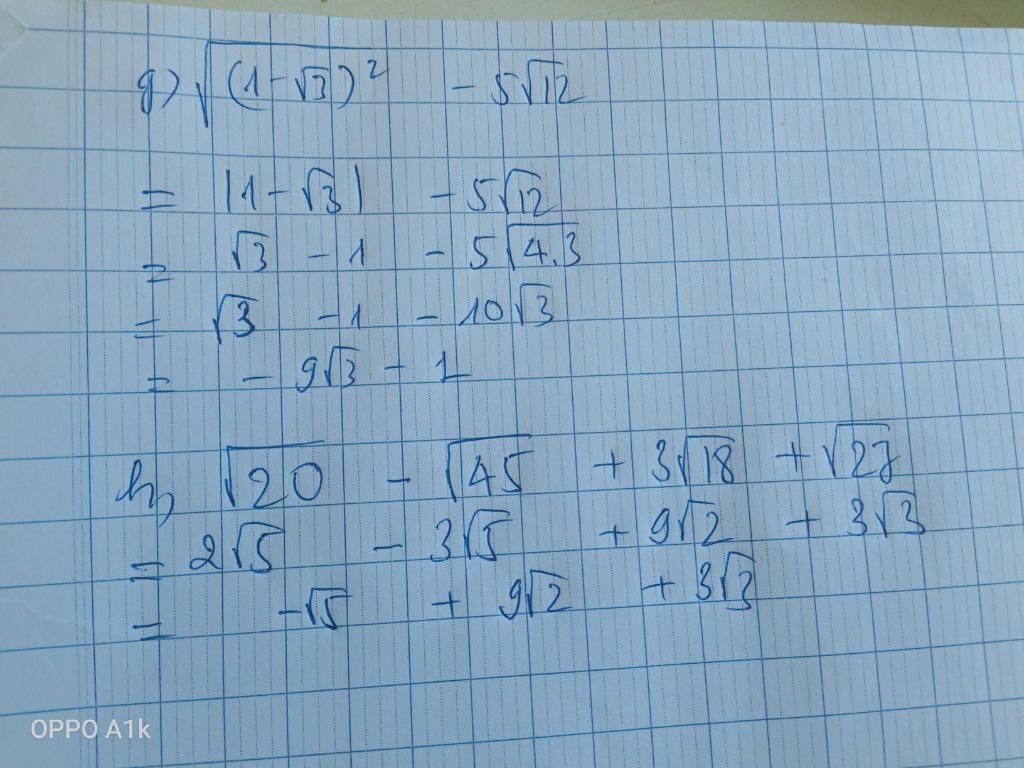 g) √(1-√3)² - 5√12
= |1-√3| - 5√12
= √3 - 1 - 5√4.3
= √3 - 1 - 10√3
= - 9√3 - 1
h, √20 - √45 + 3√18 + √27
= 2√5 - 3√5 + 9√2 + 3√3
= -√5 + 9√2 + 3√3
OPPO A1k